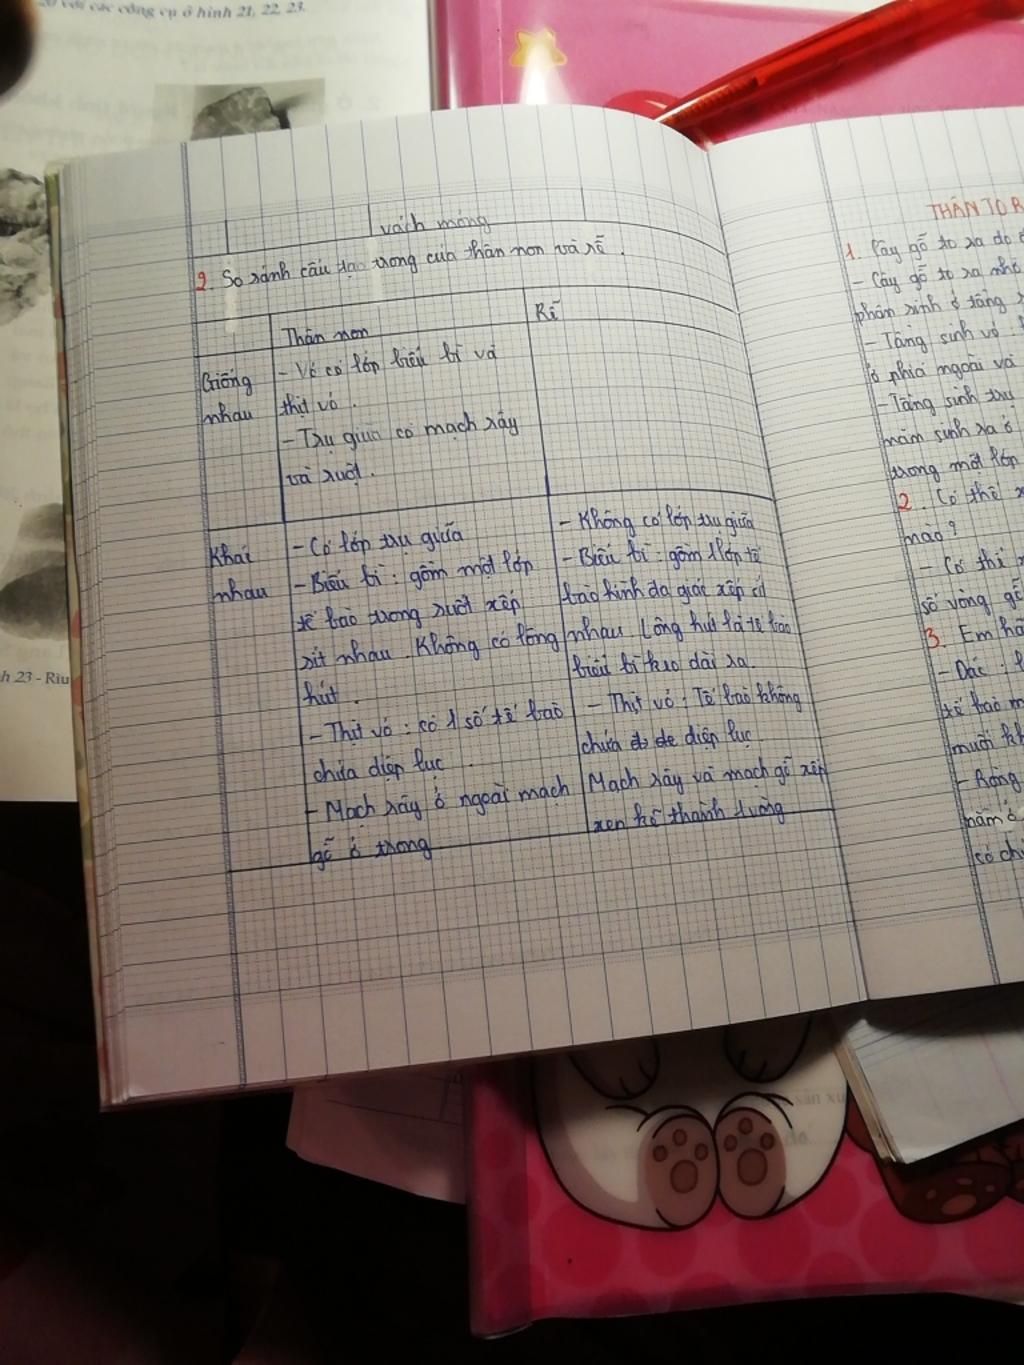 với các công cụ ở hình 21, 22, 23.
h 23 - Rìu
vách mỏng
2. So sánh cấu tạo trong của thân non và rễ.
Thân non
Rễ
Giống
nhau
- Vỏ có lớp biểu bì và
thịt vỏ.
- Trụ giữa có mạch rây
và ruột.
Khác
nhau
- Có lớp trụ giữa
- Biểu bì: gồm một lớp
tế bào trong suốt xếp
sít nhau. Không có lông
hút.
- Thịt vỏ: có 1 số tế bào
chứa diệp lục.
- Mạch rây ở ngoài mạch
gỗ ở trong
- Không có lớp trụ giữa
- Biểu bì: gồm 1 lớp tế
bào hình đa giác xếp
nhau. Lông hút là tế bào
biểu bì kéo dài ra.
- Thịt vỏ: Tế bào không
chứa diệp lục
Mạch rây và mạch gỗ xếp
xen kẽ thành
THÂN TO R
1. Cây gỗ to ra do
- Cây gỗ to ra nhờ
phân sinh ở tầng
- Tầng sinh vỏ
ở phía ngoài và
- Tầng sinh trụ
năm sinh ra ở
trong một lớp
2. Có thể
nào?
- Có thể
số vòng gỗ
3. Em hã
- Dác:
tế bào m
muối kh
- Ròng
nằm ở
có ch
sản xu